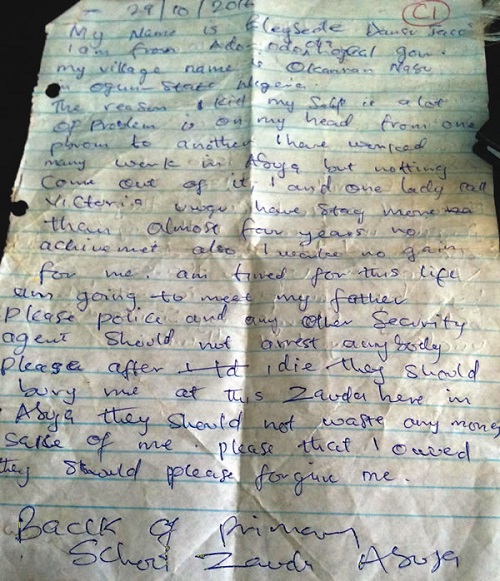 29/10/201
C1
My Name is Danso
I am from Ado- gov.
my village name is
in Ogun-State
The reason I kid my self is a lot
of problem is on my head from one
to another I have worked
many work in Abuja but notting
Come out of it, I and one lady call
Victoria have stay more
than almost four years no
achivmet also I no gain
for me. am tired for this life
am going to meet my father
Please police and any other Security
agent Should not arrest anybody
please after I die they should
bury me at this Zauda here in
Abuja they should not waste any money
sake of me please that I owed
they should please forgive me.
Bacck of primary
Zauda Abuja